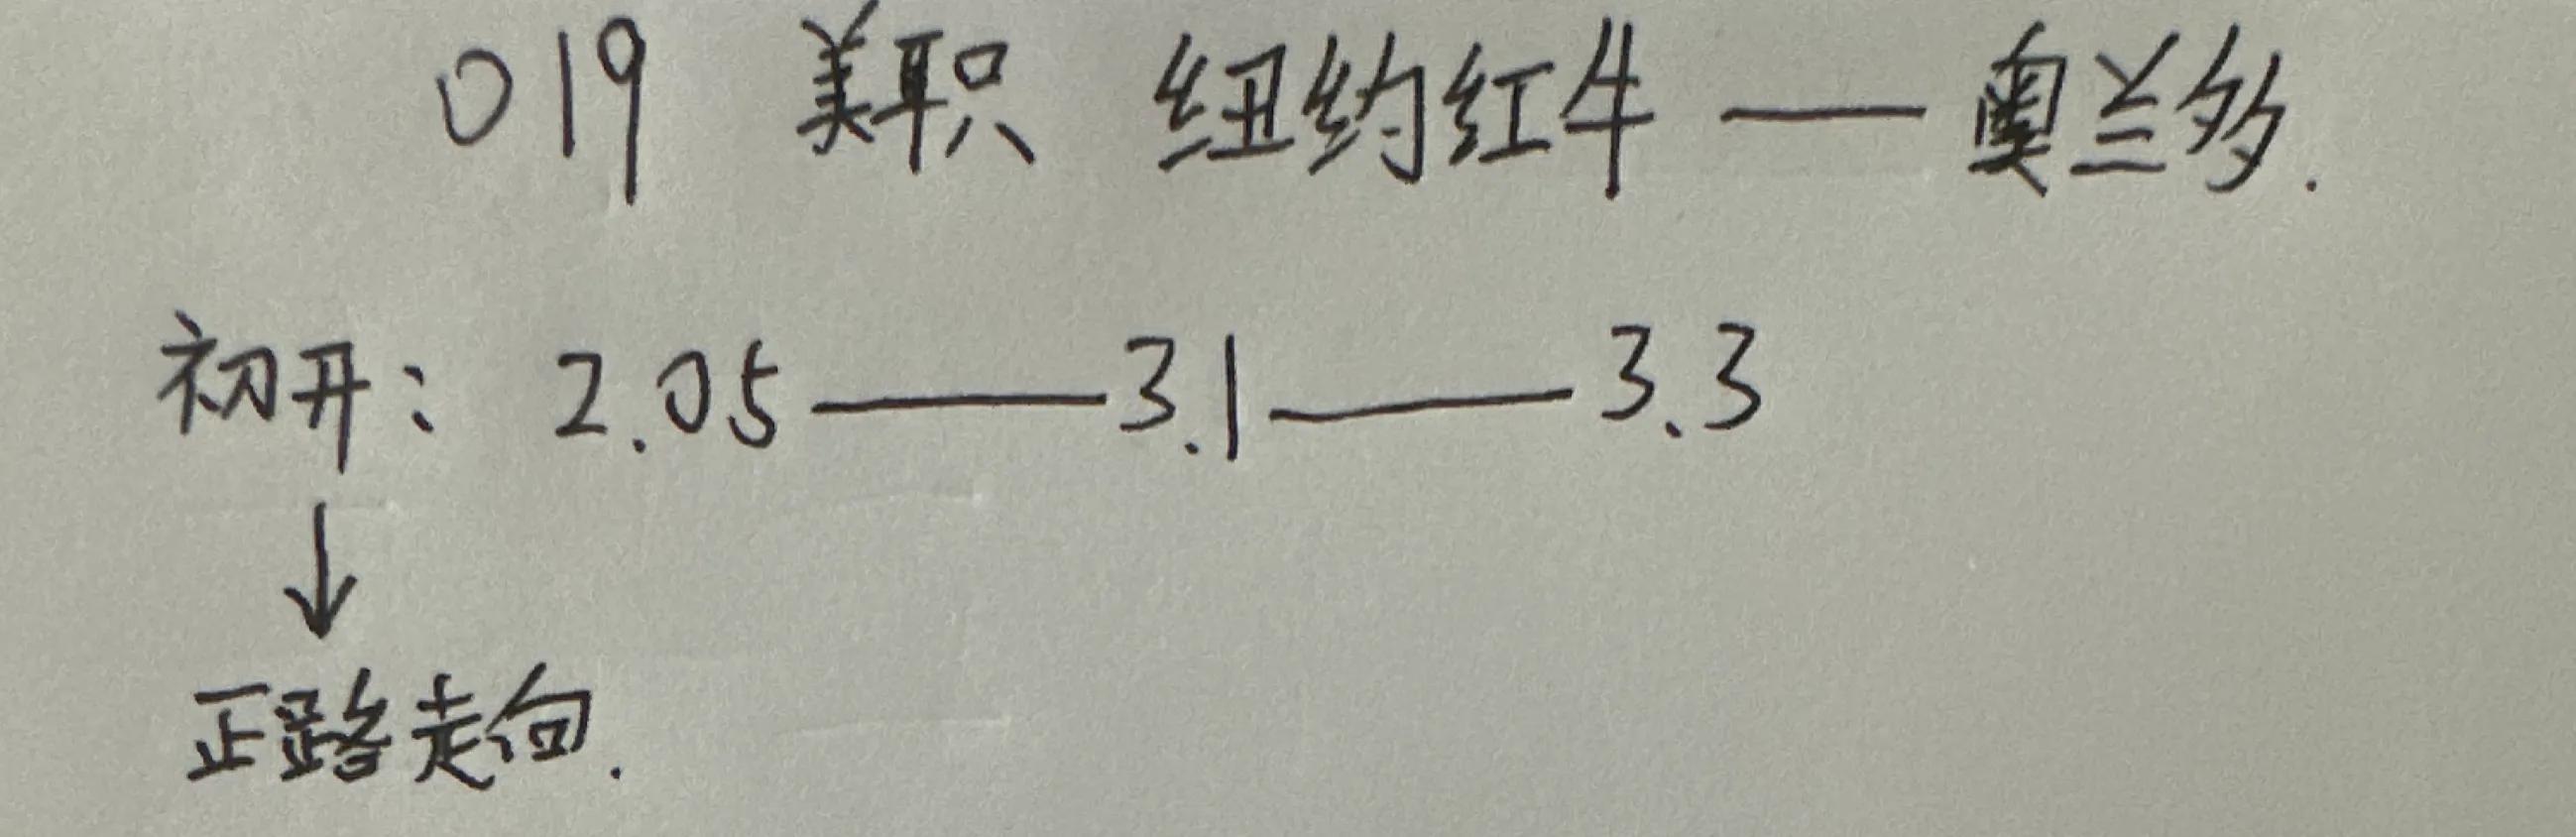 019 美职 纽约红牛 — 奥兰多.
初开: 2.05 — 3.1 — 3.3
↓
正路走向.